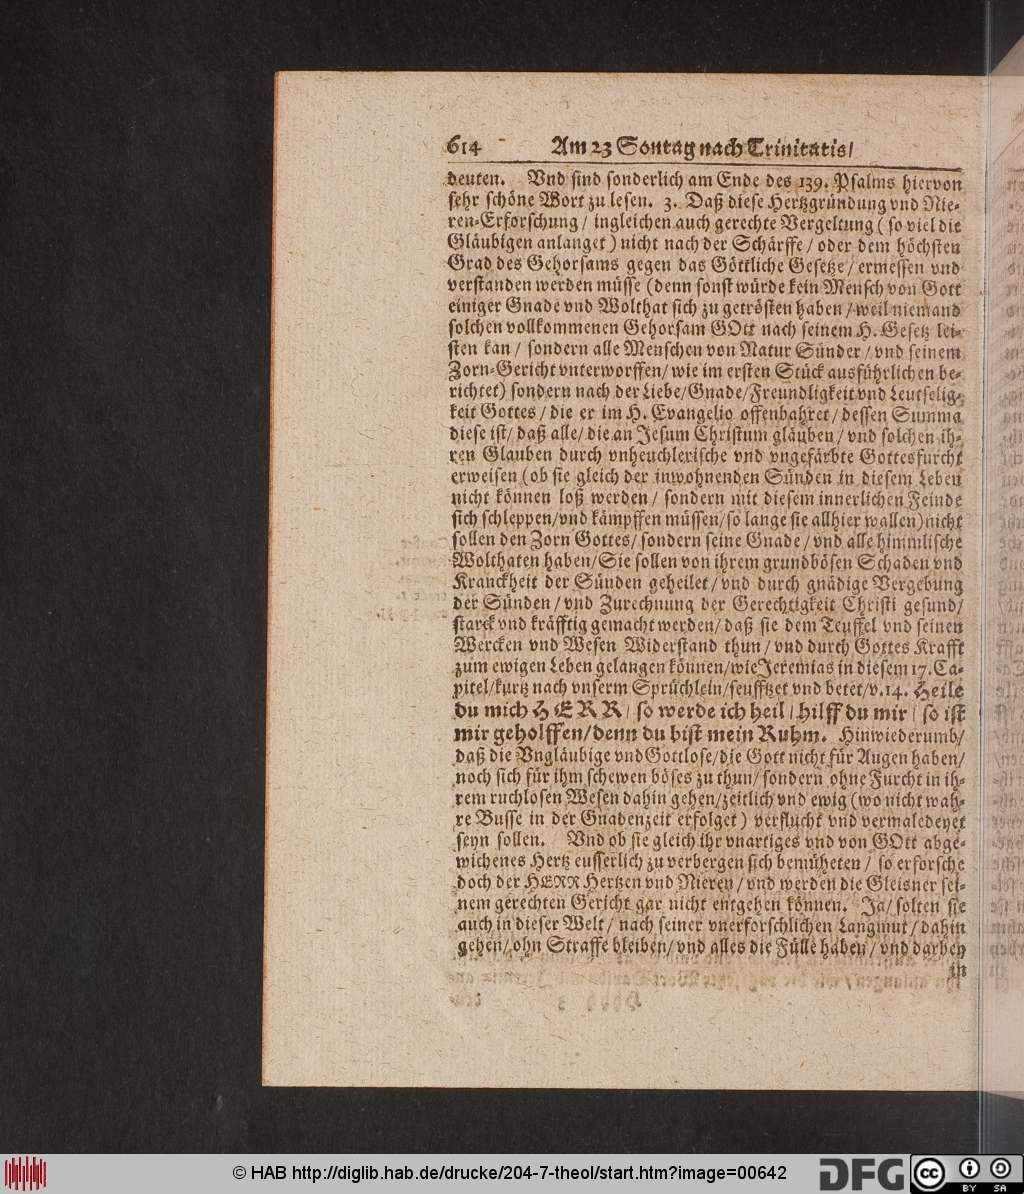 614 Am 23 Sontag nach Trinitatis/
deuten. Vnd sind sonderlich am Ende des 139. Psalms hiervon
sehr schöne Wort zu lesen. 3. Daß diese Hertzgründung vnd Nie-
ren-Erforschung / ingleichen auch gerechte Vergeltung ( so viel die
Gläubigen anlanget ) nicht nach der Schärffe / oder dem höchsten
Grad des Gehorsams gegen das Göttliche Gesetze / ermessen vnd
verstanden werden müsse (denn sonst würde kein Mensch von Gott
einiger Gnade vnd Wolthat sich zu getrösten haben / weil niemand
solchen vollkommenen Gehorsam GOtt nach seinem H. Gesetz lei-
sten kan / sondern alle Menschen von Natur Sünder / vnd seinem
Zorn-Gericht vnterworffen/ wie im ersten Stück ausführlichen be-
richtet) sondern nach der Liebe/Gnade/Freundligkeit vnd Leutselig-
keit Gottes / die er im H. Evangelio offenbahret / dessen Summa
diese ist/ daß alle/ die an Jesum Christum gläuben / vnd solchen ih-
ren Glauben durch vnheuchlerische vnd vngefärbte Gottesfurcht
erweisen (ob sie gleich der inwohnenden Sünden in diesem Leben
nicht können loß werden / sondern mit diesem innerlichen Feinde
sich schleppen/vnd kämpffen müssen/so lange sie allhier wallen) nicht
sollen den Zorn Gottes/ sondern seine Gnade / vnd alle himmlische
Wolthaten haben/Sie sollen von ihrem grundbösen Schaden vnd
Kranckheit der Sünden geheilet / vnd durch gnädige Vergebung
der Sünden / vnd Zurechnung der Gerechtigkeit Christi gesund/
starck vnd kräfftig gemacht werden/ daß sie dem Teuffel vnd seinen
Wercken vnd Wesen Widerstand thun / vnd durch Gottes Krafft
zum ewigen Leben gelangen können/wie Jeremias in diesem 17. Ca-
pitel/kurtz nach vnserm Sprüchlein/seufftzet vnd betet/v.14. Heile
du mich HERR/ so werde ich heil/ hilff du mir/ so ist
mir geholffen/denn du bist mein Ruhm. Hinwiederumb/
daß die Vngläubige vnd Gottlose/die Gott nicht für Augen haben/
noch sich für ihm schewen böses zu thun/ sondern ohne Furcht in ih-
rem ruchlosen Wesen dahin gehen/zeitlich vnd ewig (wo nicht wah-
re Busse in der Gnadenzeit erfolget ) verflucht vnd vermaledeyet
seyn sollen. Vnd ob sie gleich ihr vnartiges vnd von GOtt abge-
wichenes Hertz eusserlich zu verbergen sich bemüheten / so erforsche
doch der HERR Hertzen vnd Nieren / vnd werden die Gleisner sei-
nem gerechten Gericht gar nicht entgehen können. Ja/ solten sie
auch in dieser Welt / nach seiner vnerforschlichen Langmut / dahin
gehen/ ohn Straffe bleiben/ vnd alles die Fülle haben / vnd darben
in
© HAB http://diglib.hab.de/drucke/204-7-theol/start.htm?image=00642
DFG
cc BY SA